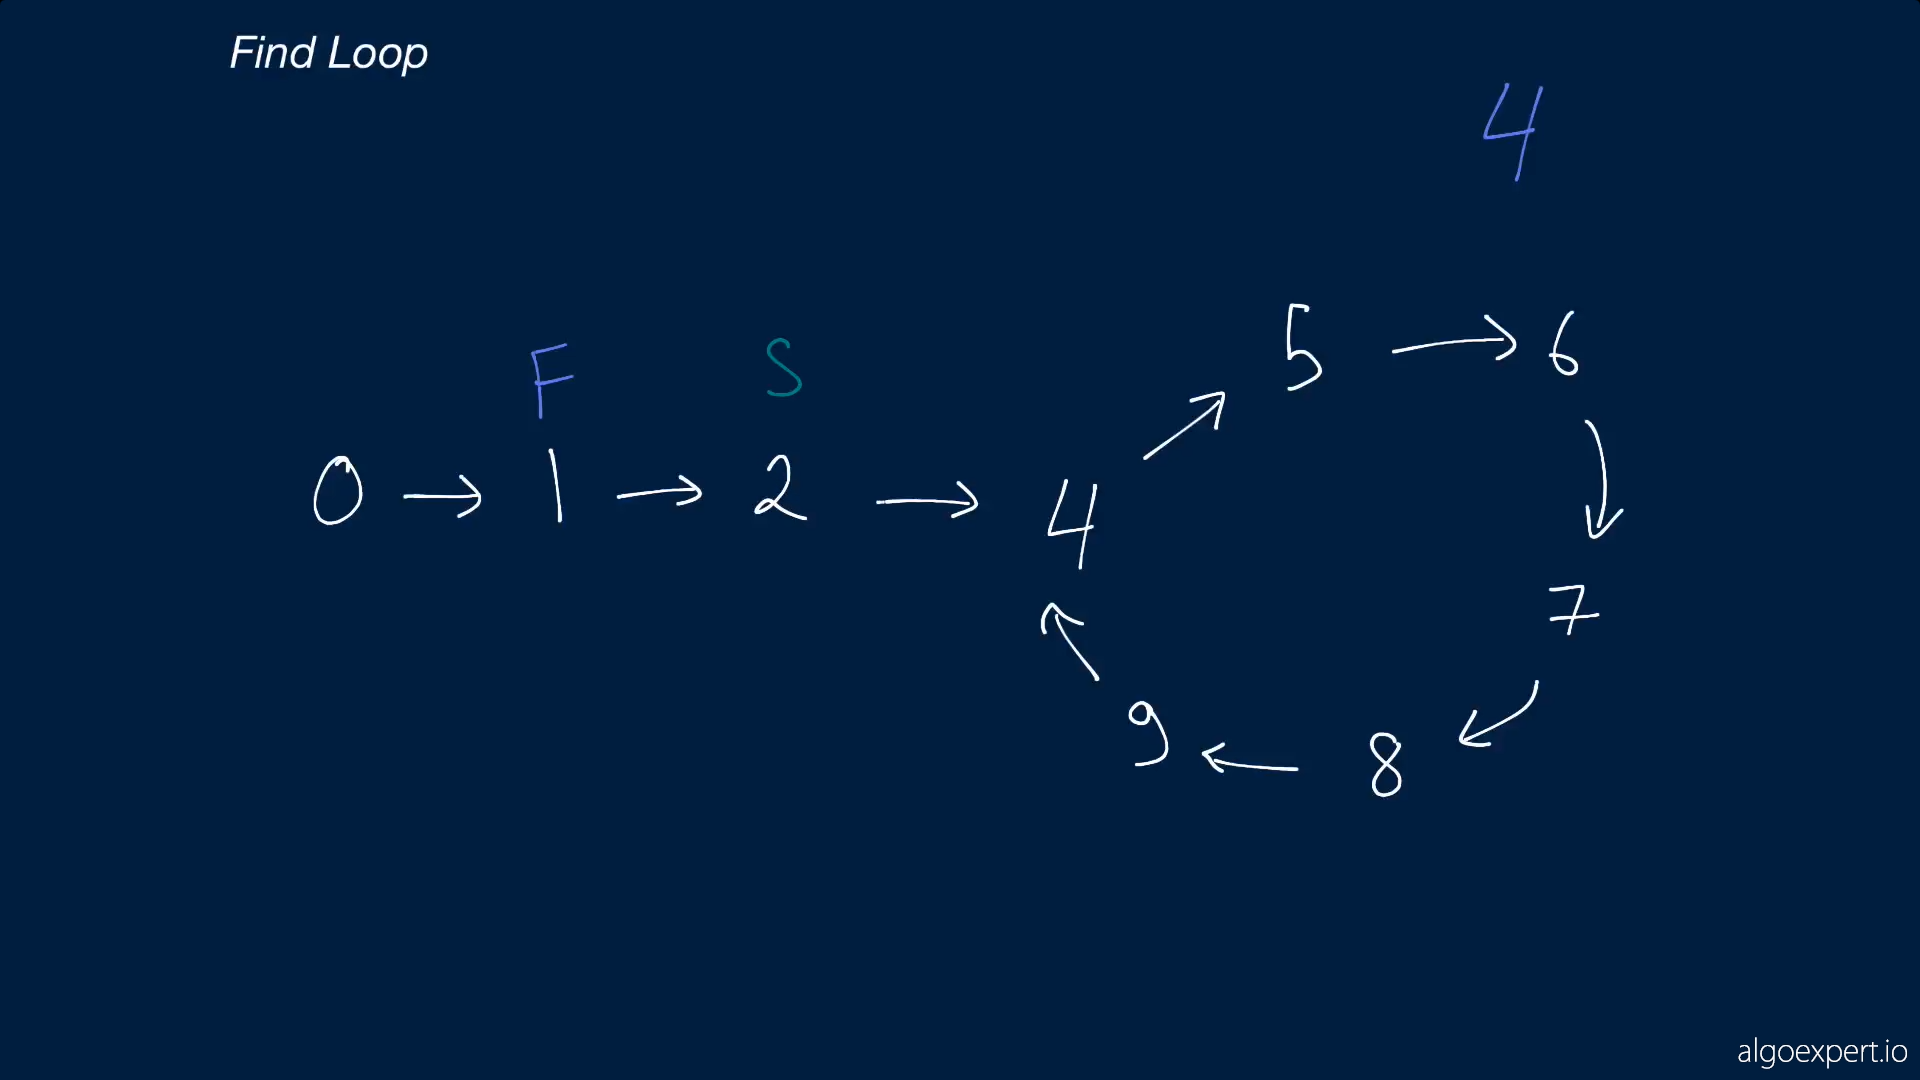 Find Loop
4
5 → 6
F S
0 → 1 → 2 → 4
7
9 ← 8
algoexpert.io